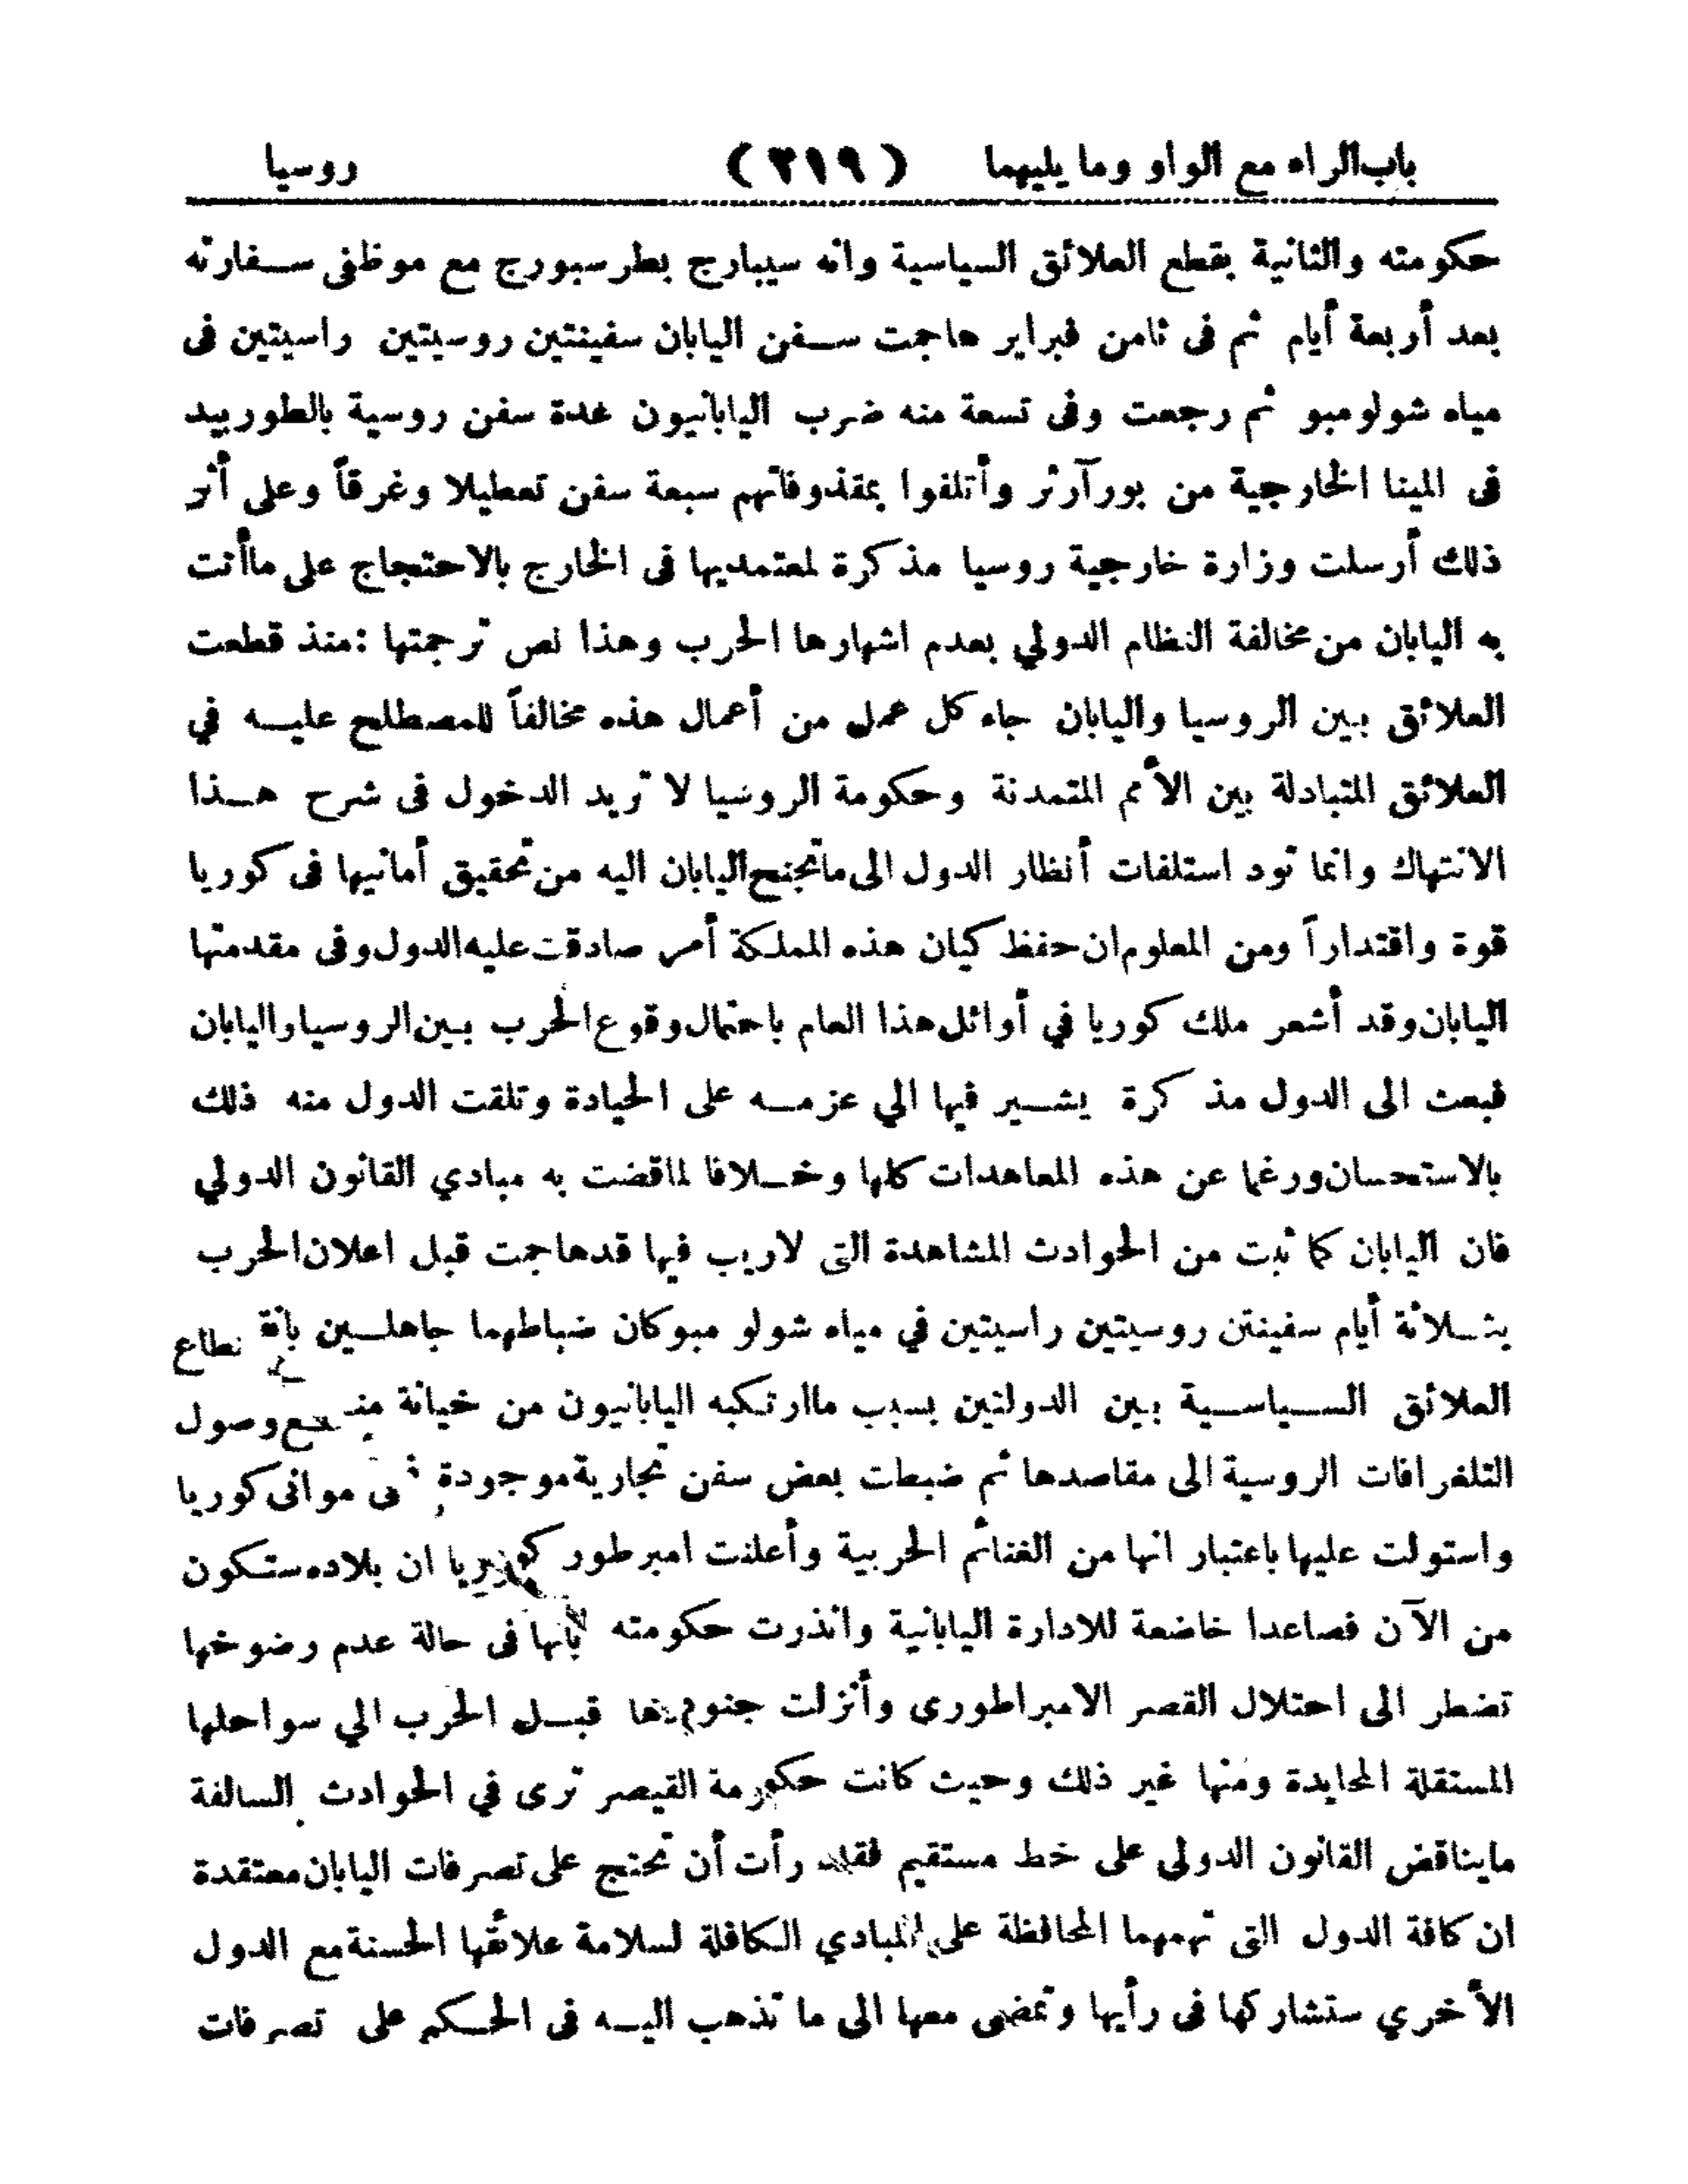 باب الراء مع الواو وما يليهما (٣١٩) روسيا
حكومته والثانية بقطع العلائق السياسية وانه سيبارح بطرسبورج مع موظفى سفارته
بعد أربعة أيام ثم فى ثامن فبراير هاجمت سفن اليابان سفينتين روسيتين راسيتين فى
مياه شولومبو ثم رجعت وفى تسعة منه ضرب اليابانيون عدة سفن روسية بالطوربيد
فى المينا الخارجية من بورآرثر وأتلفوا بمقذوفاتهم سبعة سفن تعطيلا وغرقاً وعلى أثر
ذلك أرسلت وزارة خارجية روسيا مذكرة لمعتمديها فى الخارج بالاحتجاج على ماأتت
به اليابان من مخالفة النظام الدولي بعدم اشهارها الحرب وهذا نص ترجمتها : منذ قطعت
العلائق بين الروسيا واليابان جاء كل عمل من أعمال هذه مخالفاً للمصطلح عليه في
العلائق المتبادلة بين الأمم المتمدنة وحكومة الروسيا لا تريد الدخول فى شرح هذا
الانتهاك وانما تود استلفات أنظار الدول الى ماتجنح اليابان اليه من تحقيق أمانيها فى كوريا
قوة واقتداراً ومن المعلوم ان حفظ كيان هذه المملكة أمر صادقت عليه الدول وفى مقدمتها
اليابان وقد أشعر ملك كوريا في أوائل هذا العام باحتمال وقوع الحرب بين الروسيا واليابان
فبعث الى الدول مذكرة يشير فيها الي عزمه على الحيادة وتلقت الدول منه ذلك
بالاستحسان ورغما عن هذه المعاهدات كلها وخلافا لماقضت به مبادي القانون الدولي
فان اليابان كما ثبت من الحوادث المشاهدة التى لاريب فيها قدهاجمت قبل اعلان الحرب
بثلاثة أيام سفينتن روسيتين راسيتين في مياه شولو مبو كان ضباطهما جاهلين بانقطاع
العلائق السياسية بين الدولتين بسبب ماارتكبه اليابانيون من خيانة منع وصول
التلغرافات الروسية الى مقاصدها ثم ضبطت بعض سفن تجارية موجودة فى موانى كوريا
واستولت عليها باعتبار انها من الغنائم الحربية وأعلنت امبرطور كوريا ان بلاده ستكون
من الآن فصاعدا خاضعة للادارة اليابانية وانذرت حكومته بأنها فى حالة عدم رضوخها
تضطر الى احتلال القصر الامبراطورى وأنزلت جنودها قبل الحرب الي سواحلها
المستقلة المحايدة ومنها غير ذلك وحيث كانت حكومة القيصر ترى في الحوادث السالفة
مايناقض القانون الدولى على خط مستقيم فقد رأت أن تحتج على تصرفات اليابان معتقدة
ان كافة الدول التى تهمهما المحافظة على المبادي الكافلة لسلامة علائقها الحسنة مع الدول
الأخري ستشاركها فى رأيها وتمضى معها الى ما تذهب اليه فى الحكم على تصرفات